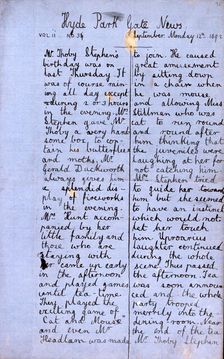 Hyde Park Gate News
Vol II No 34 September Monday 12th 1892
Mr Thoby Stephen's
birthday was on
last Thursday. It
was of course rain-
ing all day except
during 2 or 3 hours
in the evening. Mrs
Stephen gave Mr
Thoby a very hand-
some box to con-
tain his butterflies
and moths. Mr
Gerald Duckworth
always gives him
a splendid dis-
play of fireworks
in the evening.
Mrs Hunt accom-
panied by her
little family and
those who are
staying with
her came up early
in the afternoon
and played games
until tea-time.
They played the
exciting game of
Cat and Mouse
and even Mr
Headlam was made
to join. He caused
great amusement
by sitting down
in a chair when
he was mouse
and allowing Miss
Stillman who was
cat to run round
and round after
him thinking that
the servants were
laughing at her for
not catching him.
Mrs Stephen tried
to guide her toward
him but she seemed
to have an instinct
which would not
let her touch
him. Uproarious
laughter continued
during the whole
scene. Thus passed
the afternoon. Tea
was soon announ-
ced and the whole
party trooped
merrily into the
dining-room. Near
the end of the tea
Mr Thoby Stephen